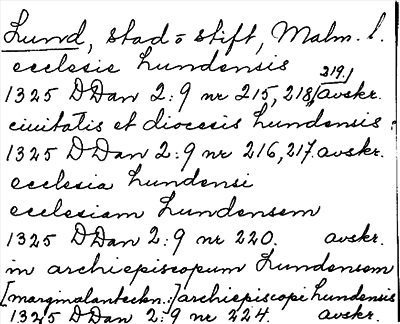 Lund, stad o stift, Malm. l.
ecclesie Lundensis
1325 DDan 2:9 nr 215, 218, 219. avskr.
ciuitatis et diocesis Lundensis:
1325 DDan 2:9 nr 216, 217. avskr.
ecclesia Lundensi
ecclesiam Lundensem
1325 DDan 2:9 nr 220. avskr.
in archiepiscopum Lundensem
[marginalanteckn.:] archiepiscopi Lundensis
1325 DDan 2:9 nr 224. avskr.